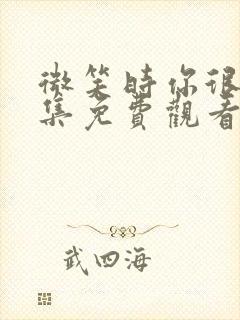 微笑時你很
集免費觀看
武四海